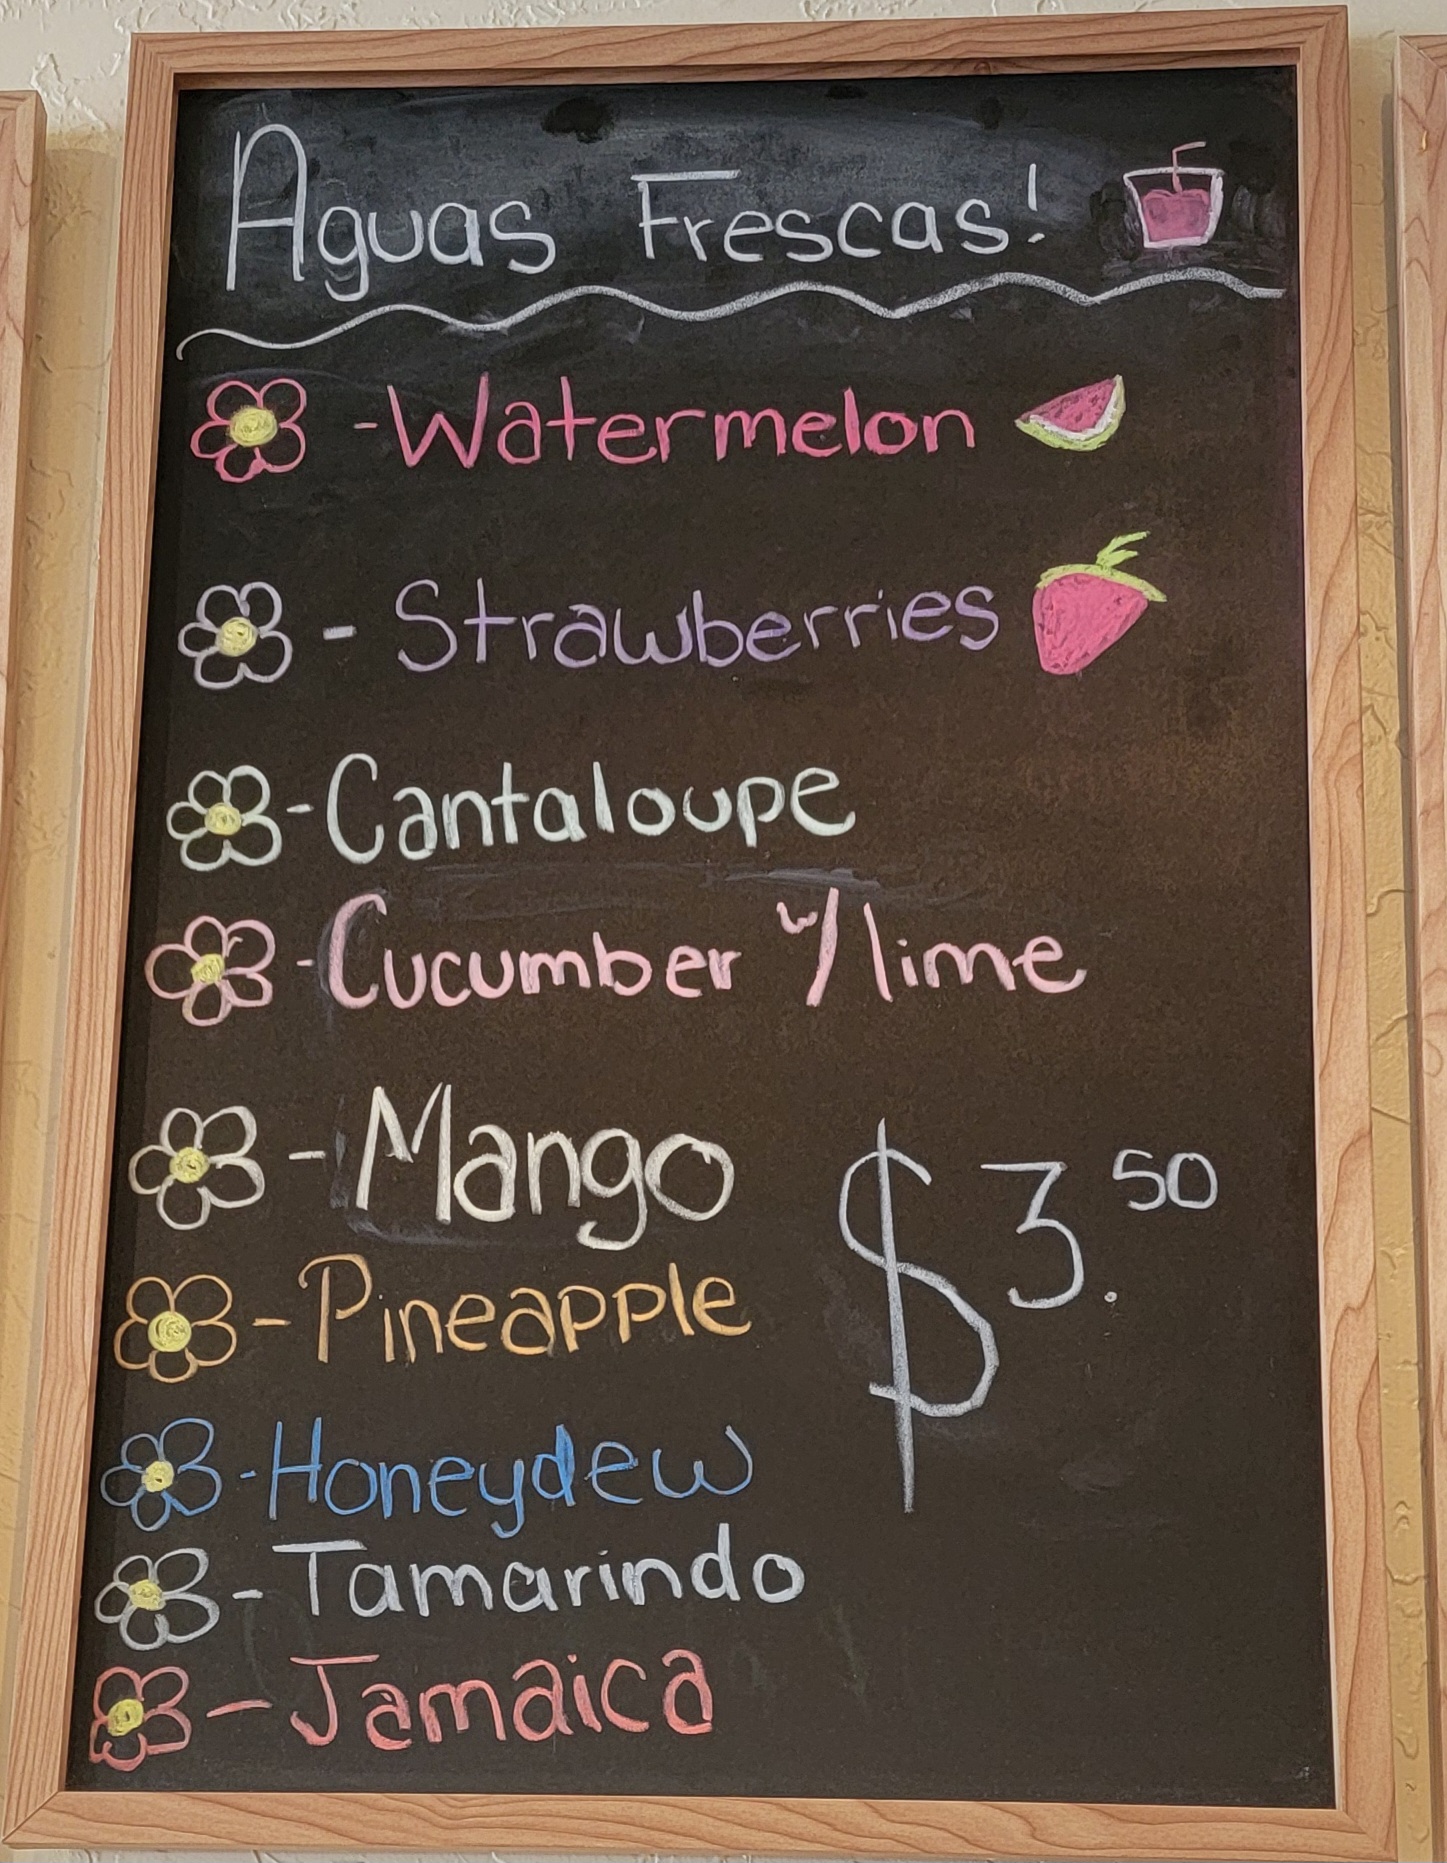 Aguas Frescas!
- Watermelon
- Strawberries
- Cantaloupe
- Cucumber w/ lime
- Mango
$3.50
- Pineapple
- Honeydew
- Tamarindo
- Jamaica